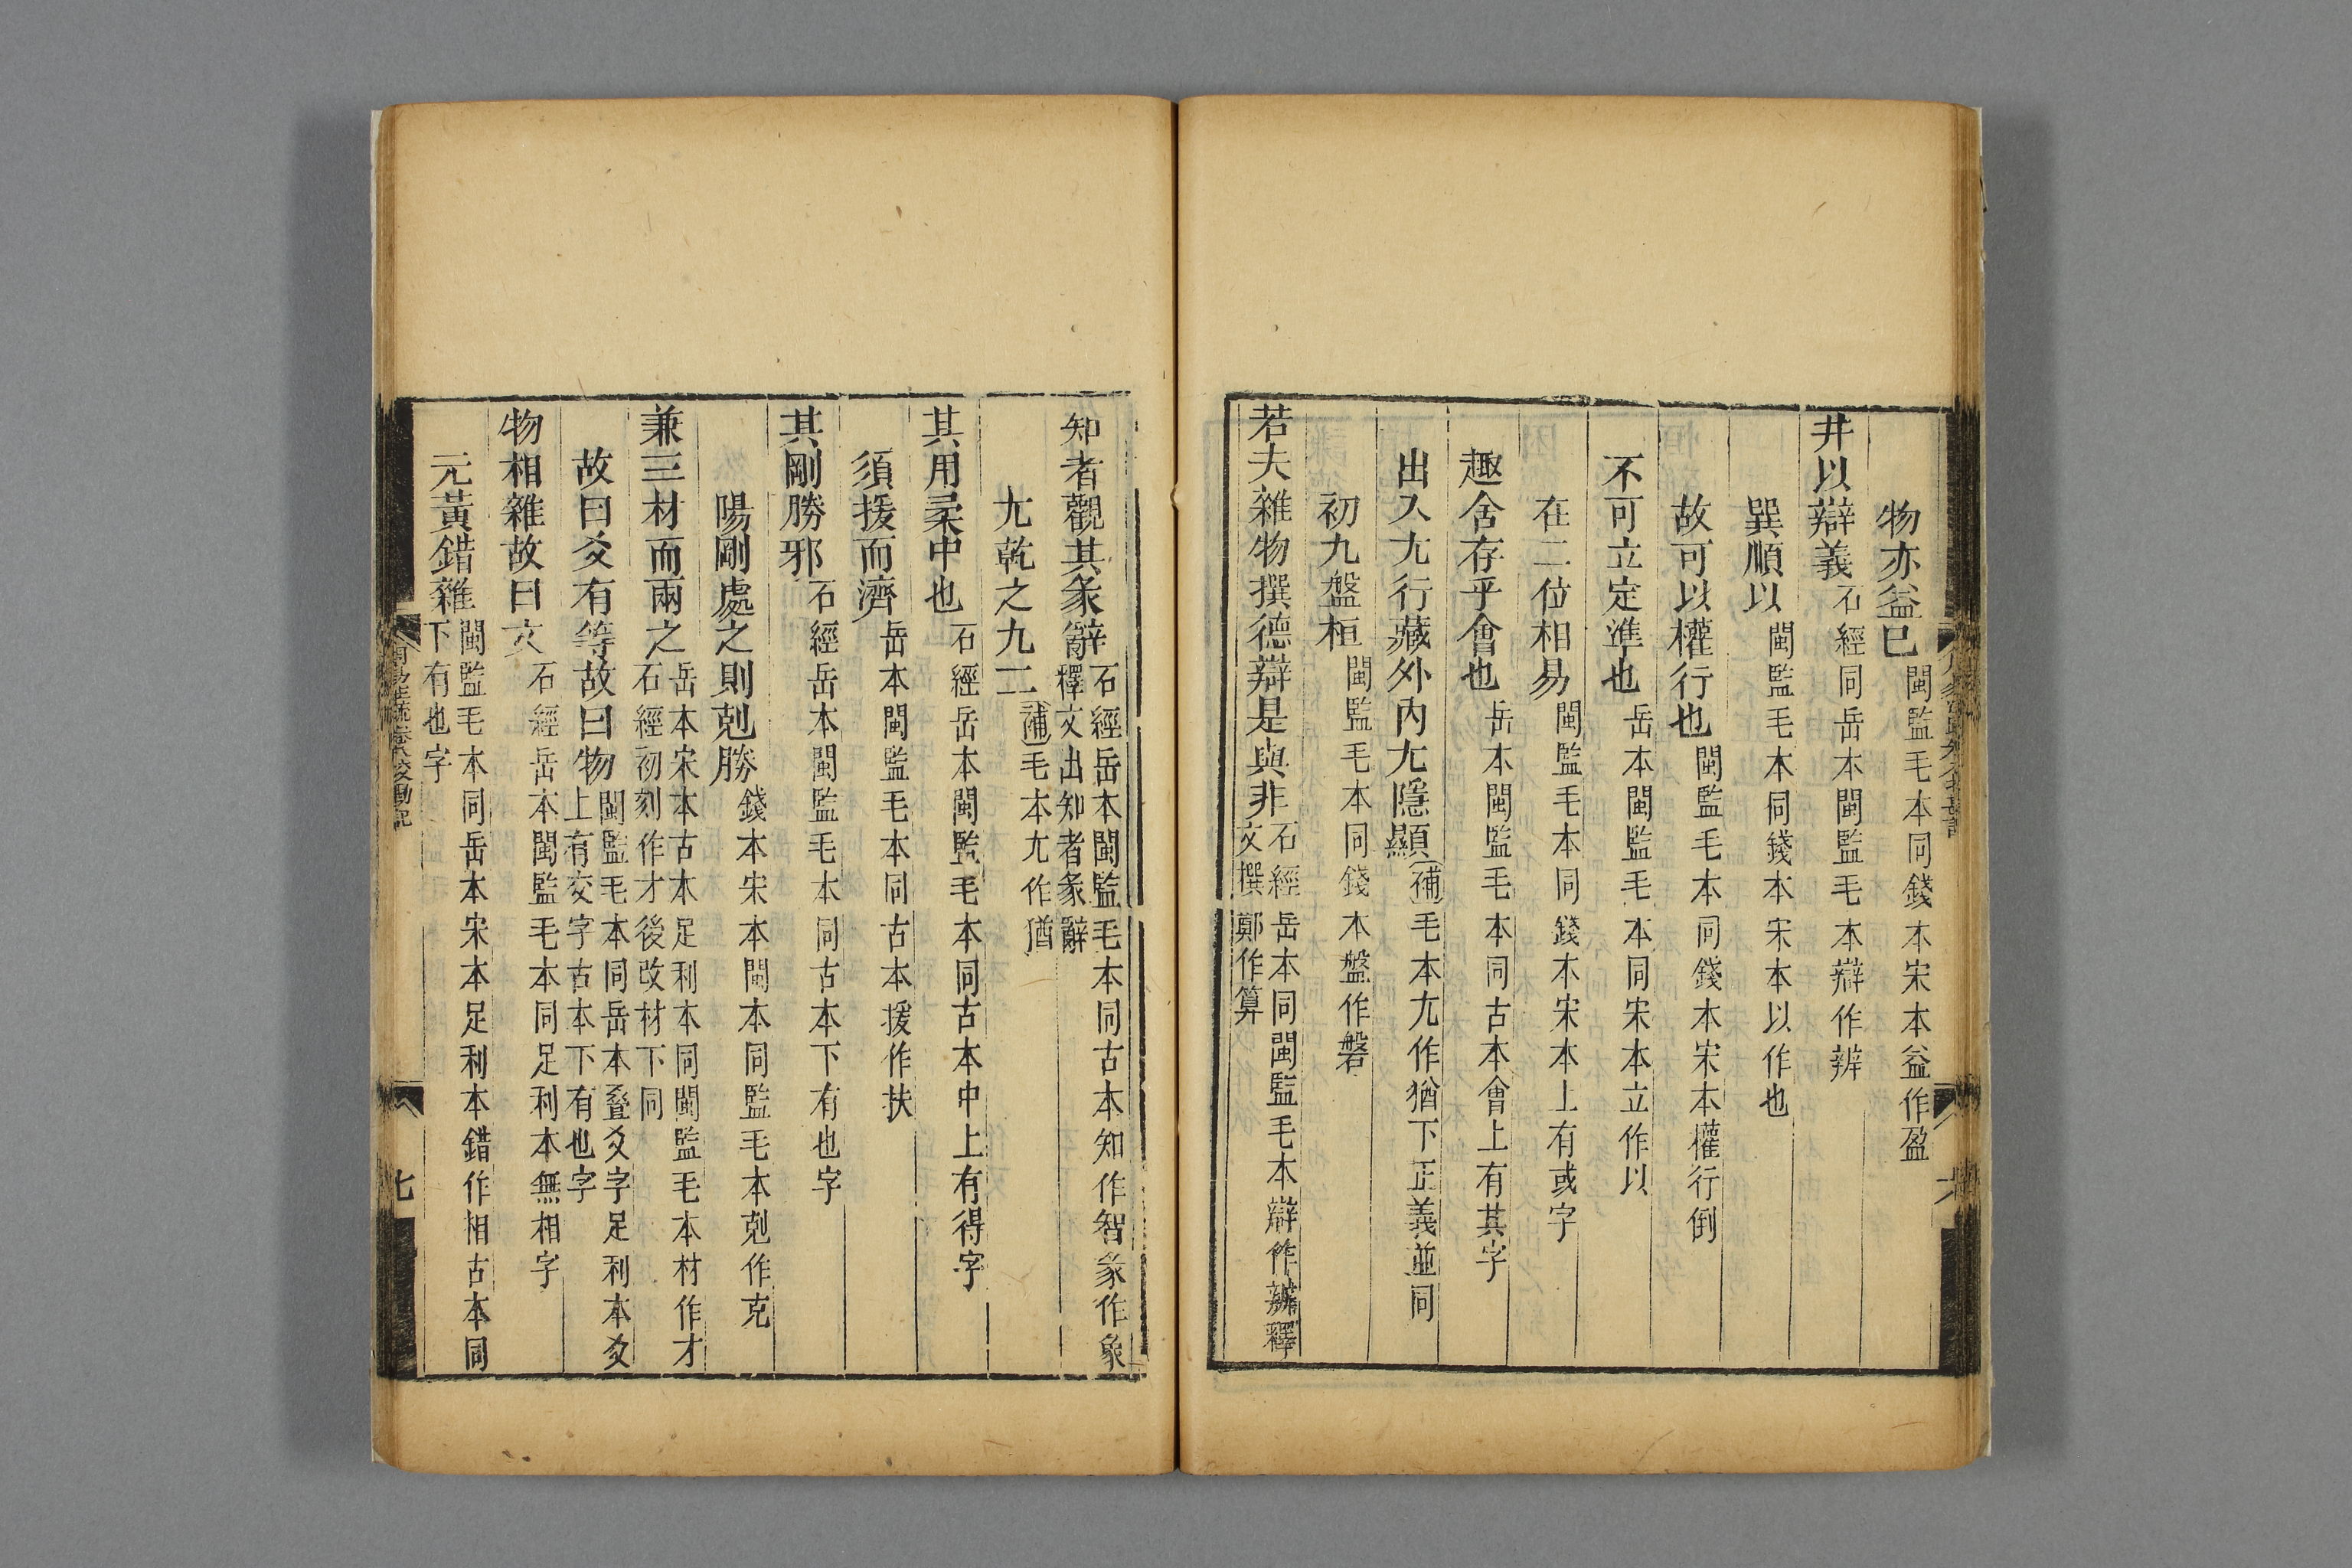 物亦益巳閩監毛本同錢本宋本益作盈
井以辯義石經同岳本閩監毛本辯作辨
巽順以閩監毛本同錢本宋本以作也
故可以權行也閩監毛本同錢本宋本權行倒
不可立定準也岳本閩監毛本同宋本立作以
在二位相易閩監毛本同錢本宋本上有或字
趣舍存乎會也岳本閩監毛本同古本會上有其字
出入尢行藏外內尢隱顯補毛本尢作猶下正義並同
初九盤桓閩監毛本同錢本盤作磐
若夫雜物撰德辯是與非石經岳本同閩監毛本辯作辨釋
文撰鄭作算
六
知者觀其彖辭石經岳本閩監毛本同古本知作智彖作象
釋文出知者彖辭
尢乾之九二補毛本尢作猶
其用柔中也石經岳本閩監毛本同古本中上有得字
須援而濟岳本閩監毛本同古本援作扶
其剛勝邪石經岳本閩監毛本同古本下有也字
陽剛處之則剋勝錢本宋本閩本同監毛本剋作克
兼三材而兩之岳本宋本古本足利本同閩監毛本材作才
石經初刻作才後改材下同
故曰爻有等故曰物閩監毛本同岳本疊爻字足利本爻
上有交字古本下有也字
物相雜故曰文石經岳本閩監毛本同足利本無相字
元黃錯雜閩監毛本同岳本宋本足利本錯作相古本同
下有也字
周易注疏卷八校勘記
七